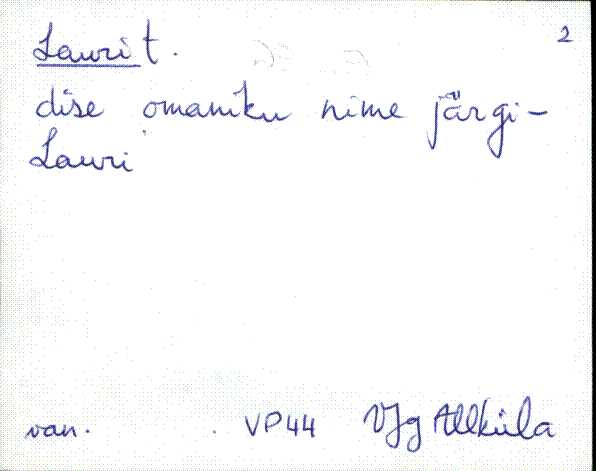 Lauri t. 2
dise omaniku nime järgi –
Lauri
van. VP44 VJg Allküla